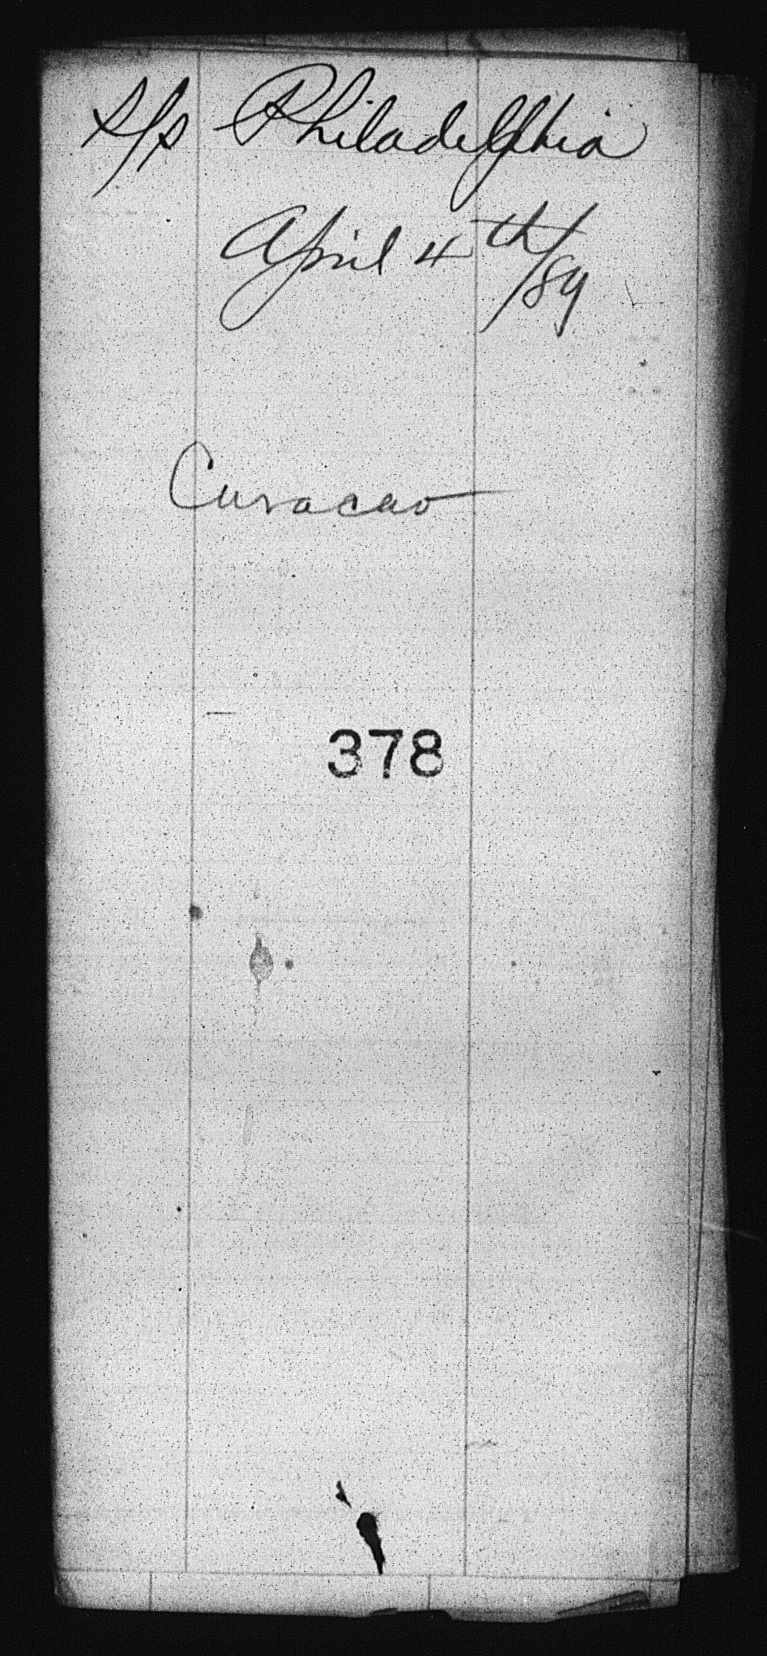 S/s Philadelphia
April 4th/89
Curacao
378